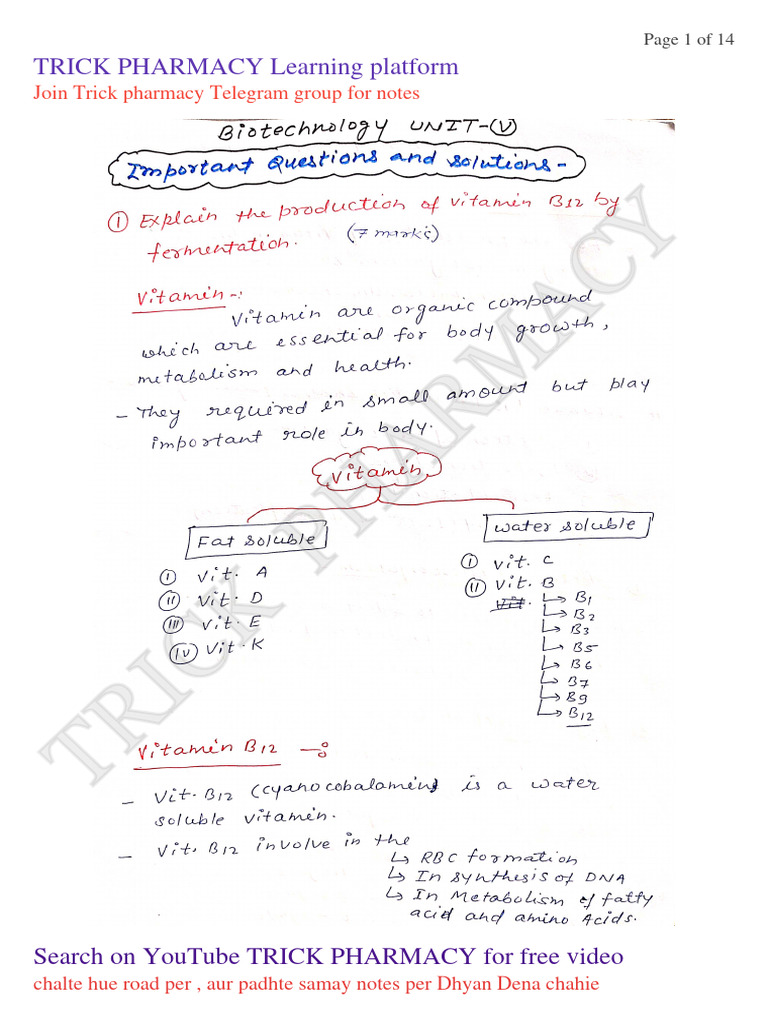 Page 1 of 14
TRICK PHARMACY Learning platform
Join Trick pharmacy Telegram group for notes
Biotechnology UNIT-(V)
Important Questions and solutions -
① Explain the production of vitamin B12 by
fermentation. (7 marks)
Vitamin -:
Vitamin are organic compound
which are essential for body growth,
metabolism and health.
- They required in small amount but play
important role in body.
Vitamin
Fat soluble
(I) Vit. A
(II) Vit. D
(III) Vit. E
(IV) Vit. K
Water soluble
(I) Vit. C
(II) Vit. B
Vit.
↳ B1
↳ B2
↳ B3
↳ B5
↳ B6
↳ B7
↳ B9
↳ B12
Vitamin B12 -:
- Vit. B12 (cyanocobalamin) is a water
soluble vitamin.
- Vit. B12 involve in the
↳ RBC formation
↳ In synthesis of DNA
↳ In Metabolism of fatty
acid and amino Acids.
TRICK PHARMACY
Search on YouTube TRICK PHARMACY for free video
chalte hue road per , aur padhte samay notes per Dhyan Dena chahie